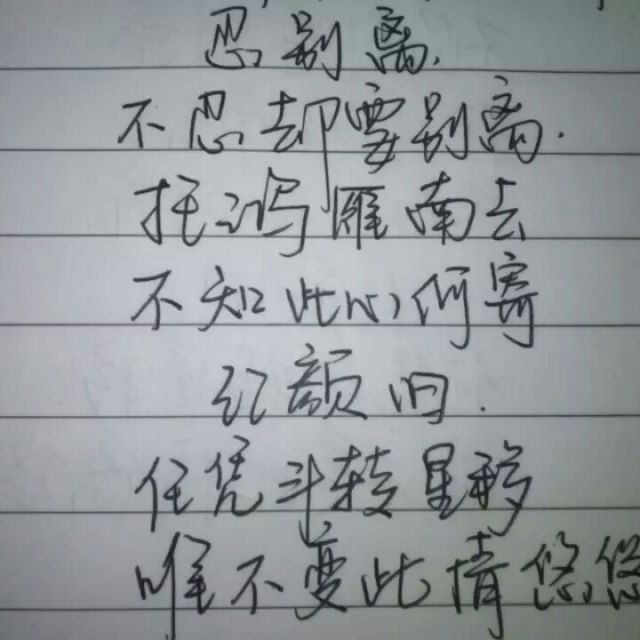 忍别离.
不忍却要别离.
托鸿雁南去
不知此心何寄
红颜旧.
任凭斗转星移
唯不变此情悠悠